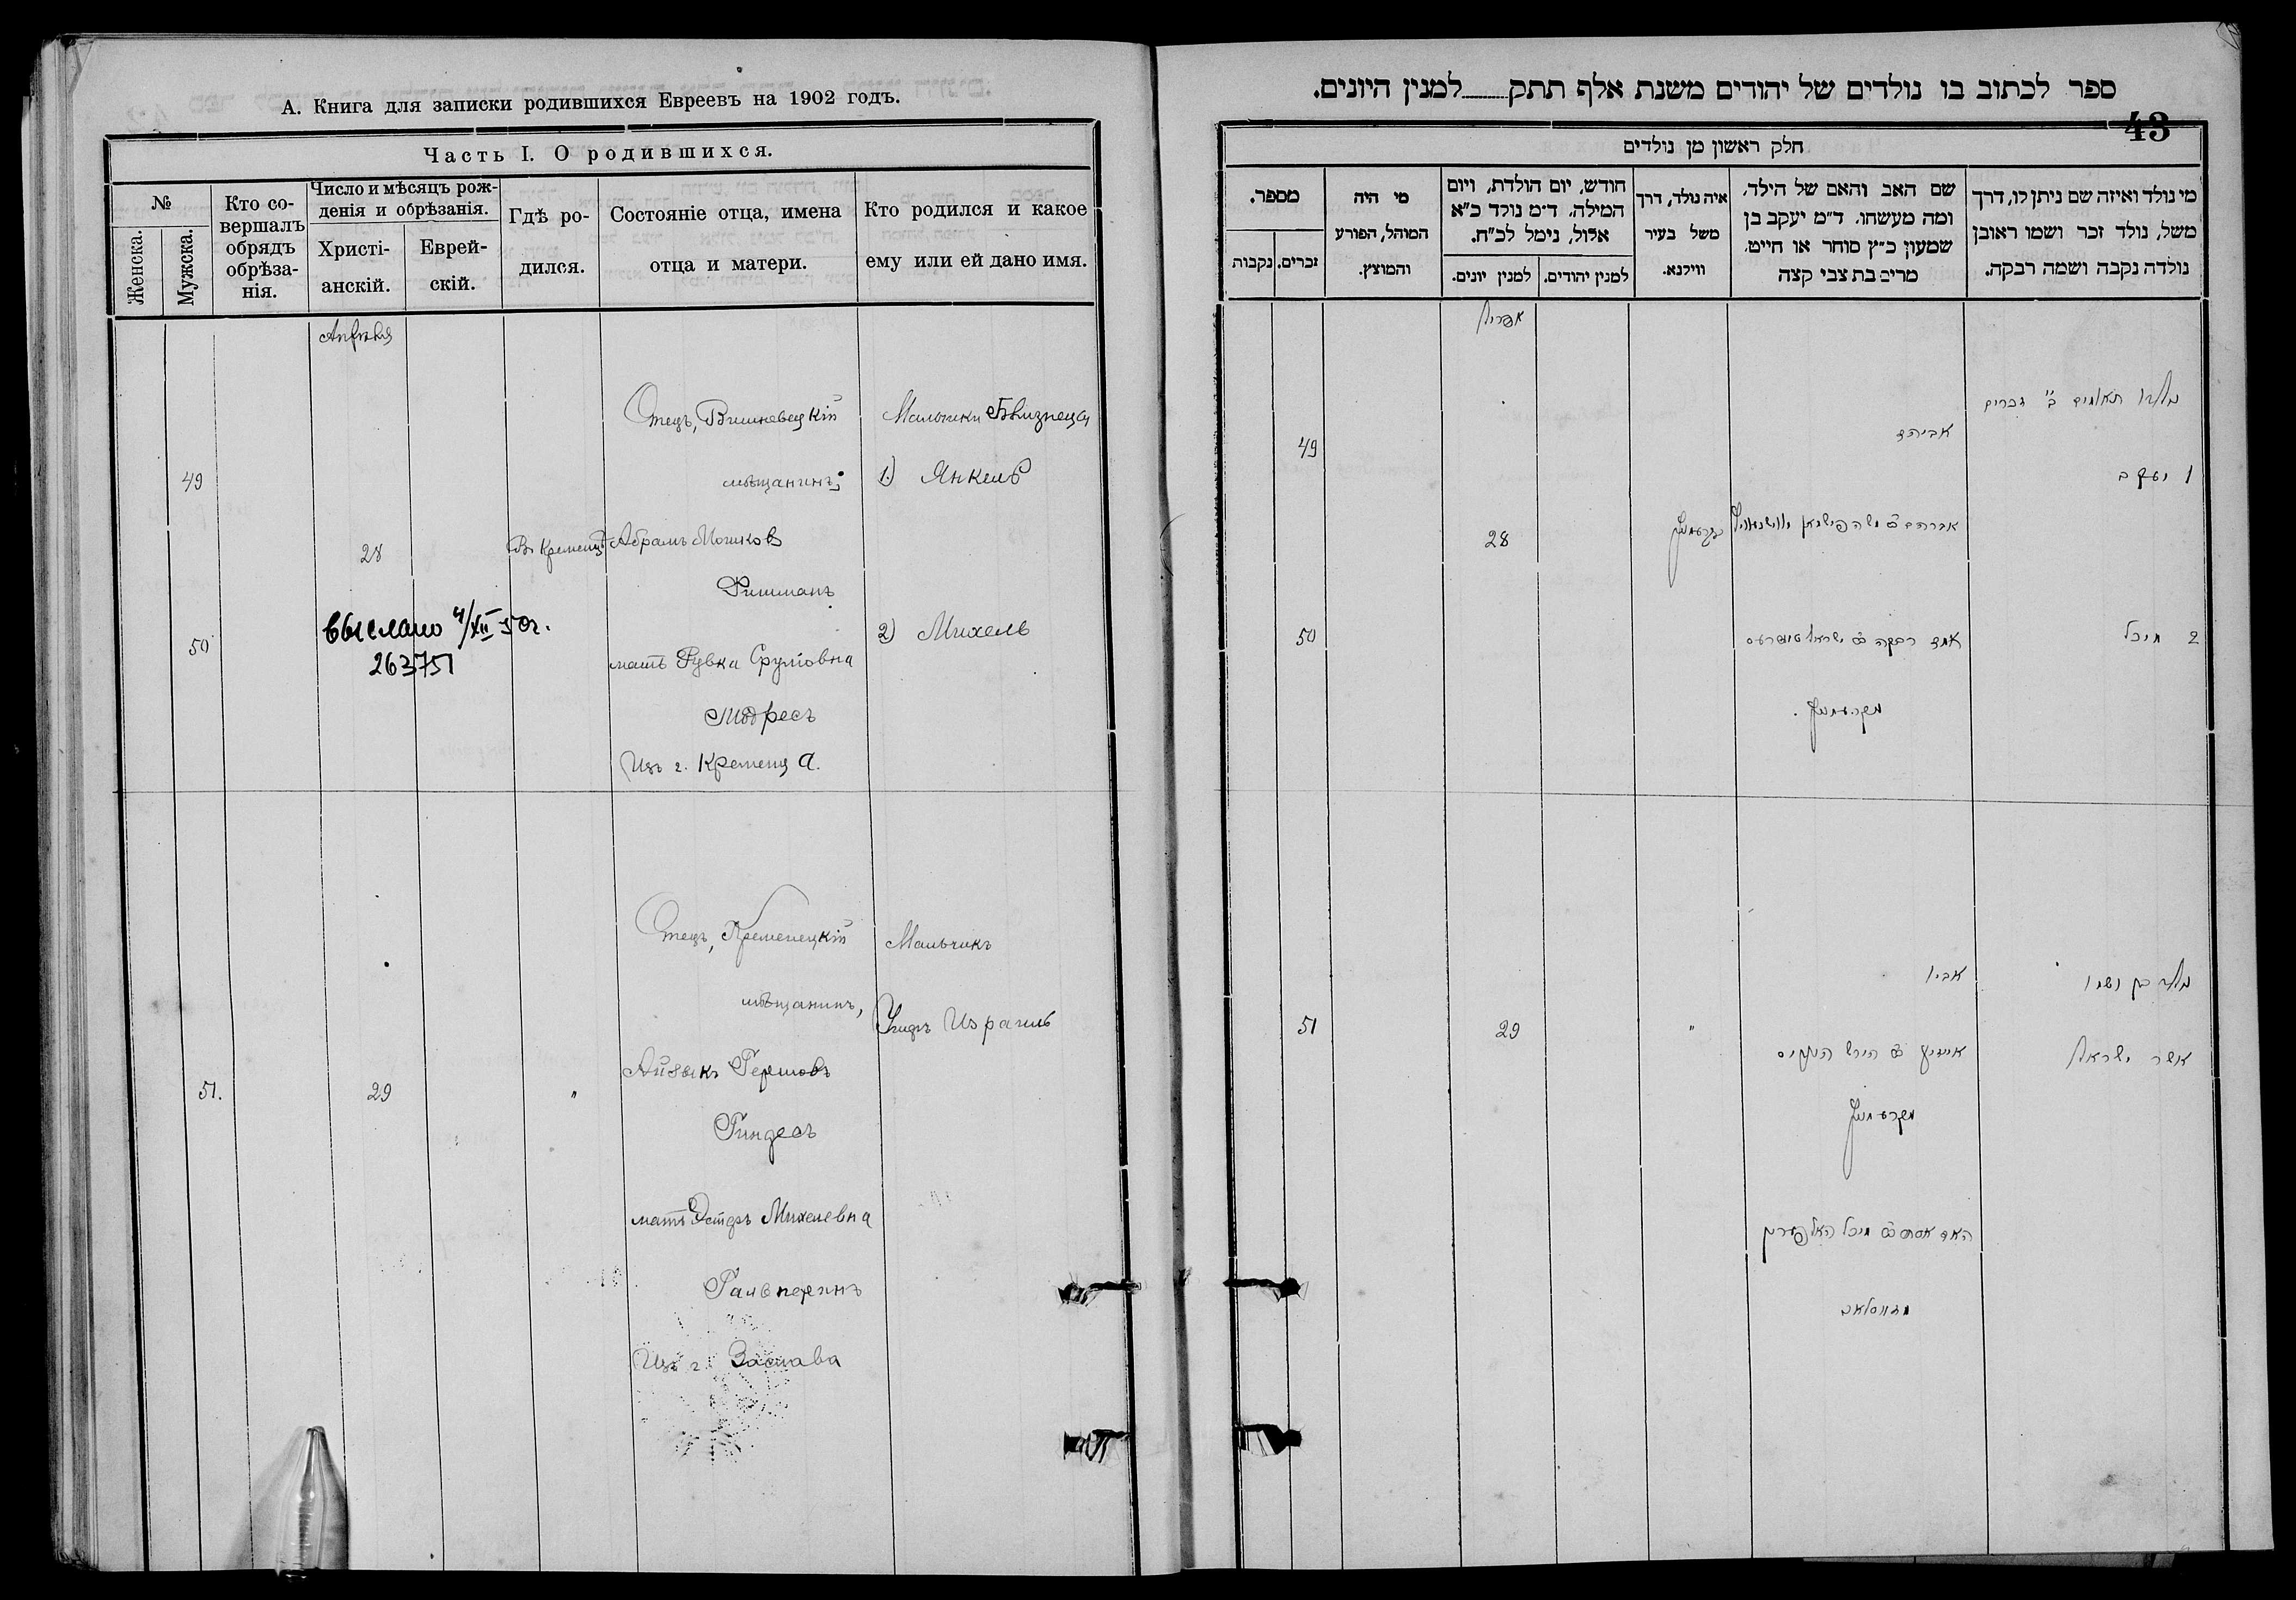 А. Книга для записки родившихся Евреевъ на 1902 годъ.
Часть I. О родившихся.
№
Женска.
Мужска.
Кто со-
вершалъ
обрядъ
обрѣза-
нія.
Число и мѣсяцъ рож-
денія и обрѣзанія.
Христі-
анскій.
Еврей-
скій.
Гдѣ ро-
дился.
Состояніе отца, имена
отца и матери.
Кто родился и какое
ему или ей дано имя.
Апрѣля
49
50
28
выслано 4/XII 50г.
263751
Въ Кременцѣ
Отецъ, Вишневецкій
мѣщанинъ
Абрамъ Мошков
Фишманъ
мать Рувка Срулiовна
Из г. Кременца.
Мальчики Близнеца
1.) Янкель
2) Михель
51.
29
"
Отецъ, Кременецкій
мѣщанинъ,
Айзыкъ Гершовъ
Гиндесъ
мать Эстеръ Михелевна
Гальперинъ
Изъ г. Заслава
Мальчикъ
Ушеръ Израиль
ספר לכתוב בו נולדים של יהודים משנת אלף תתק למנין היונים.
43
חלק ראשון מן נולדים
מי נולד ואיזה שם ניתן לו, דרך
משל, נולד זכר ושמו ראובן
נולדה נקבה ושמה רבקה.
שם האב והאם של הילד,
ומה מעשהו. ד״מ יעקב בן
שמעון כ״ץ סוחר או חייט.
מרים בת צבי קצה
איה נולד, דרך
משל בעיר
ווילנא.
חודש, יום הולדת, ויום
המילה. ד״מ נולד כ״א
אלול, נימל לכ״ח.
למנין יהודים.
למנין יונים.
מי היה
המוהל, הפורע
והמוצץ.
מספר.
זכרים.
נקבות
אפריל
נולדו תאומים ב׳ זכרים
1 יעקב
2 מיכל
אביהם
אברהם ב״ר משה פישמאן
אמם רבקה ב״ר ישראל
מקרעמניץ
קרעמניץ
28
49
50
נולד בן ושמו
אשר ישראל
אביו
אייזיק ב״ר הירש
מקרעמניץ
האם אסתר ב״ר מיכל האלפערין
מזאסלאב
"
29
51